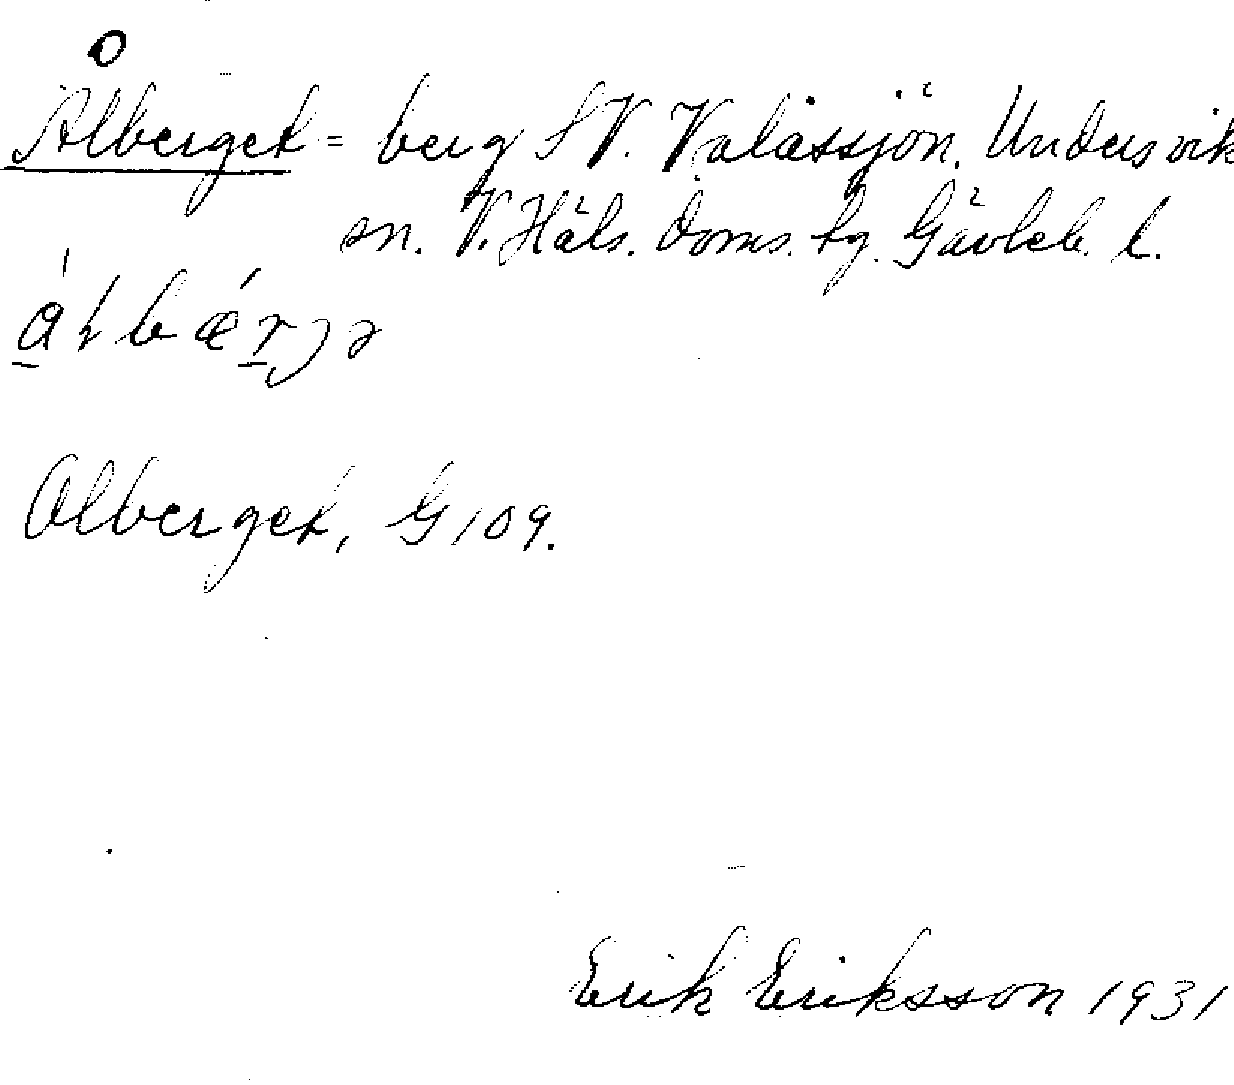 Ålberget = berg SV. Valåssjön. Undersvik
sn. V. Häls. Doms. tg. Gävleb. l.
Alberget, G 109.
Erik Eriksson 1931